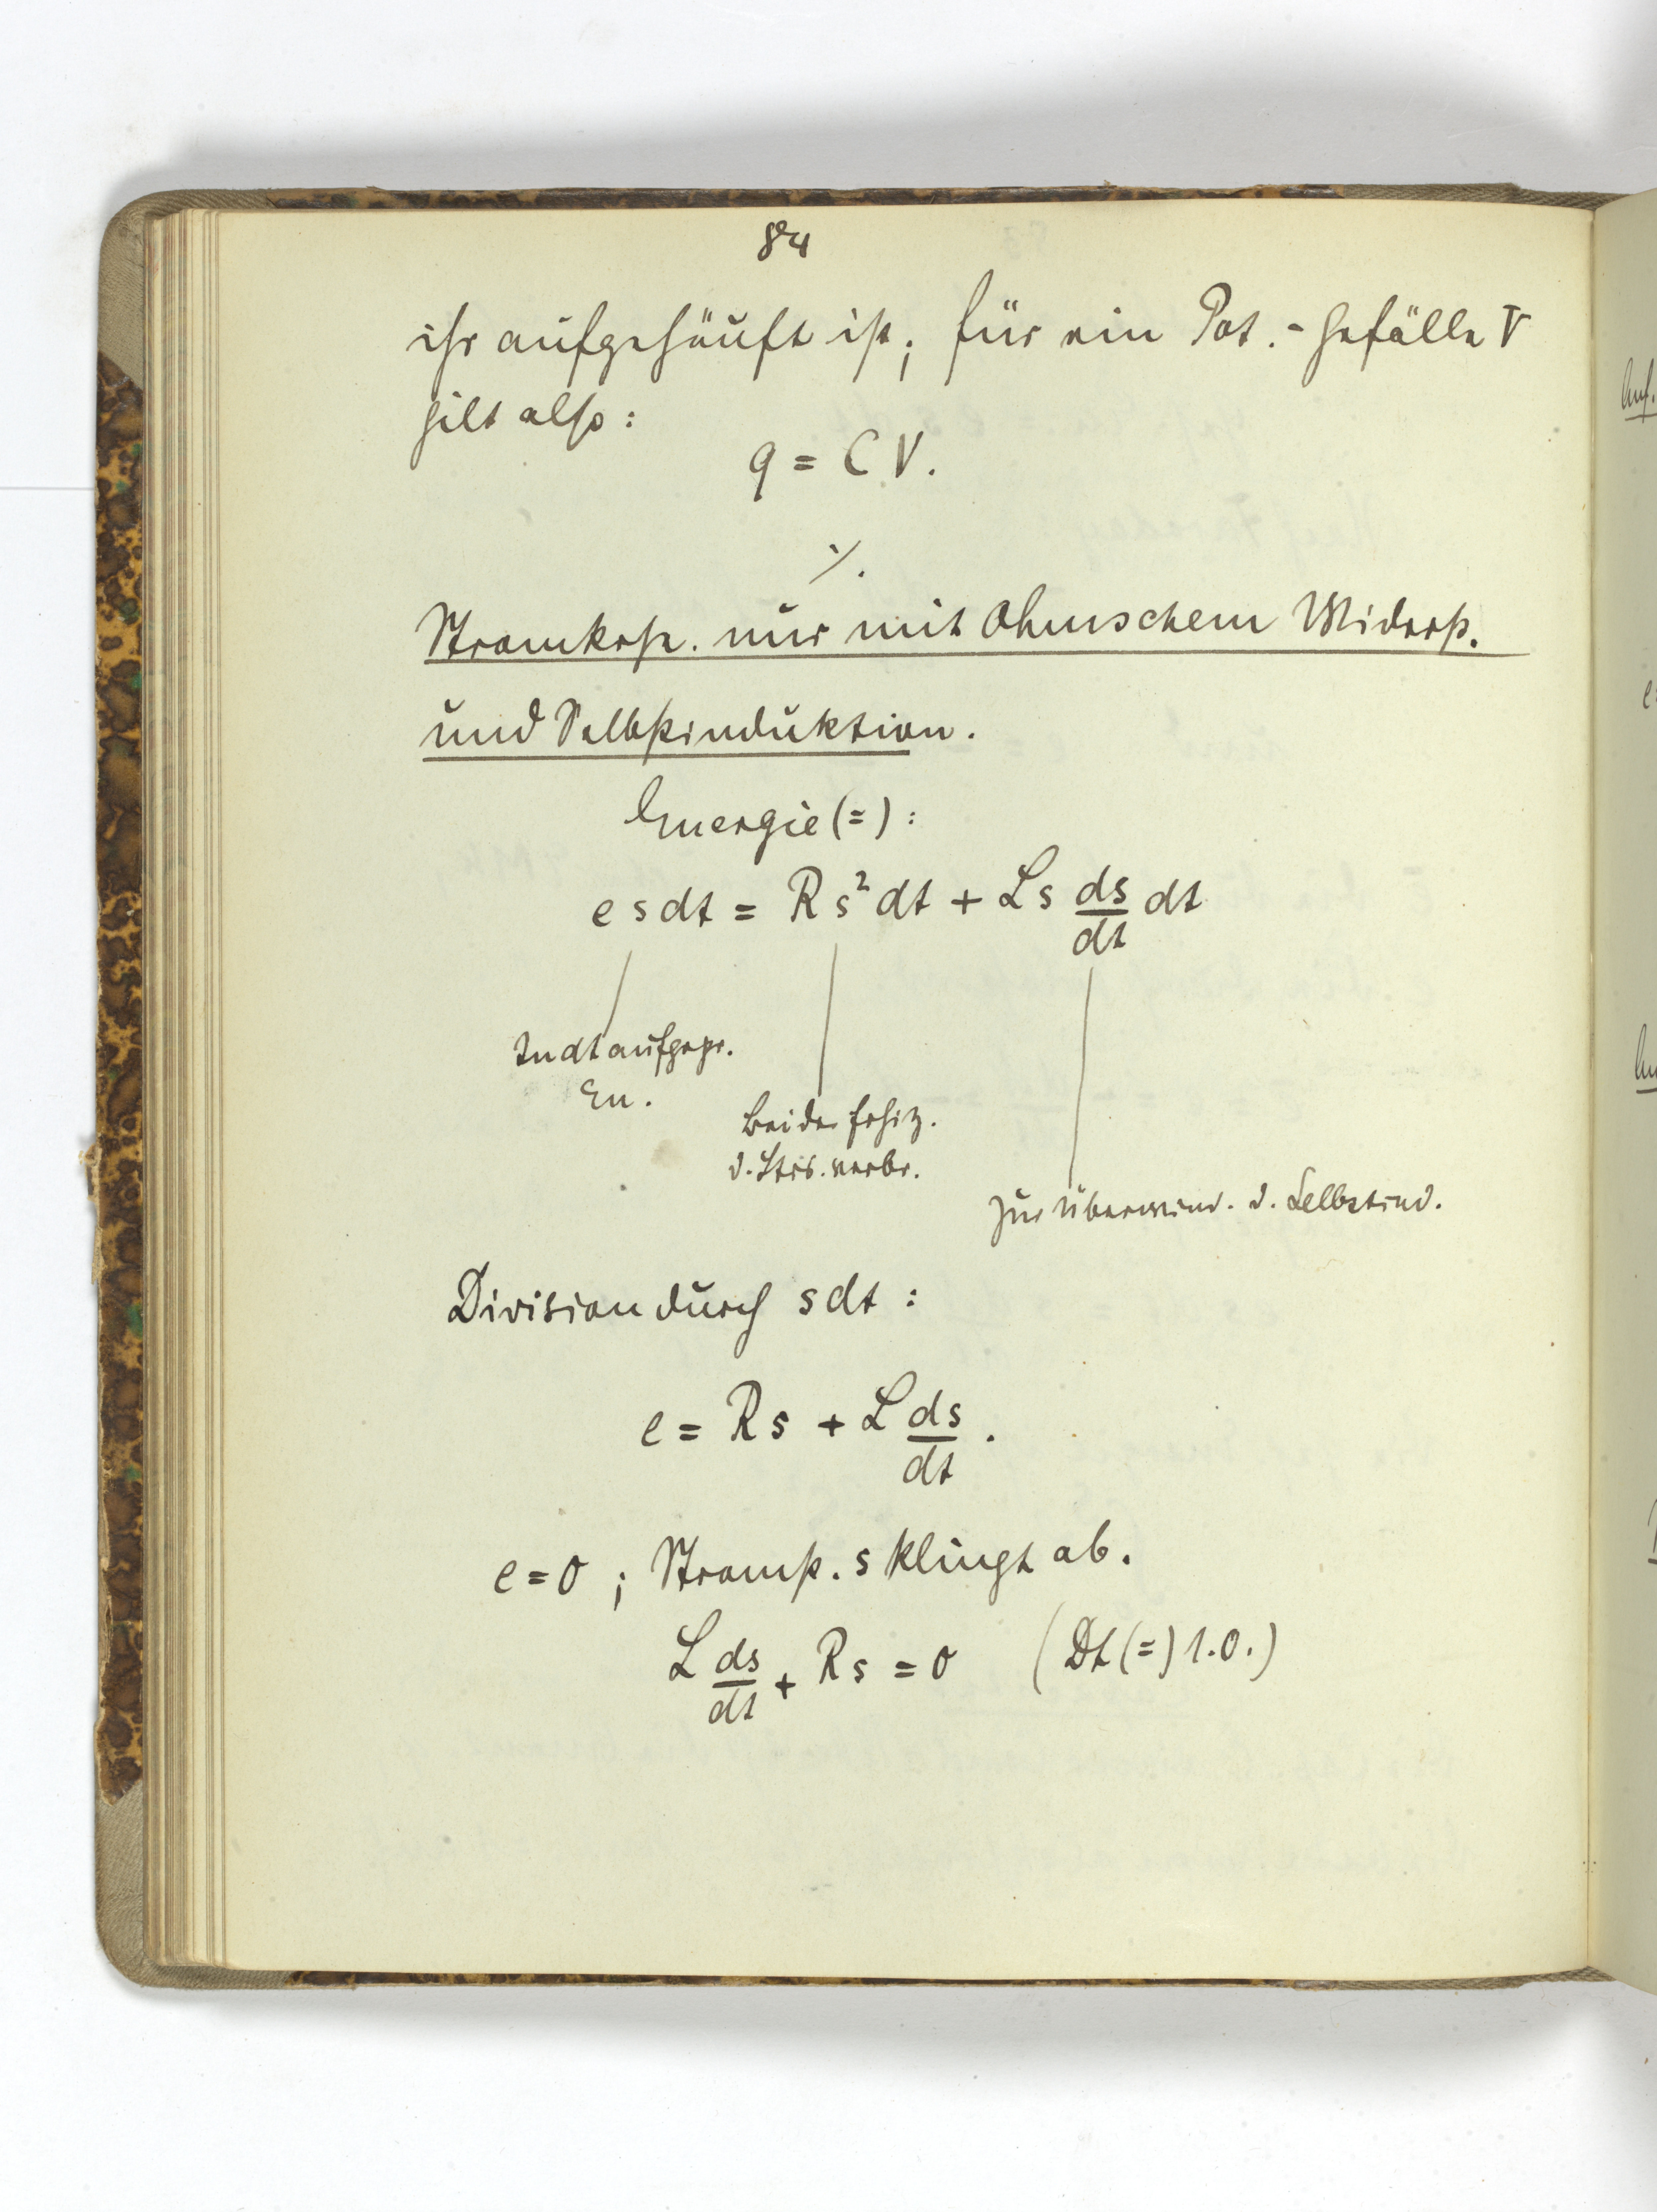 84
ihr aufgehäuft ist; für ein Pot.-Gefälle V
gilt also:
q = C V.
Stromkrse. nur mit Ohmschem Widerst.
und Selbstinduktion.
Energie (=):
e s dt = R s² dt + L s ds/dt dt
In dt aufgespr.
En.
Bei der Erhitz.
d. Strb. verbr.
Zur Überwind. d. Selbstind.
Division durch s dt:
e = R s + L ds/dt.
e = 0 ; Stromst. s klingt ab.
L ds/dt + R s = 0 (Dt (=) 1.O.)